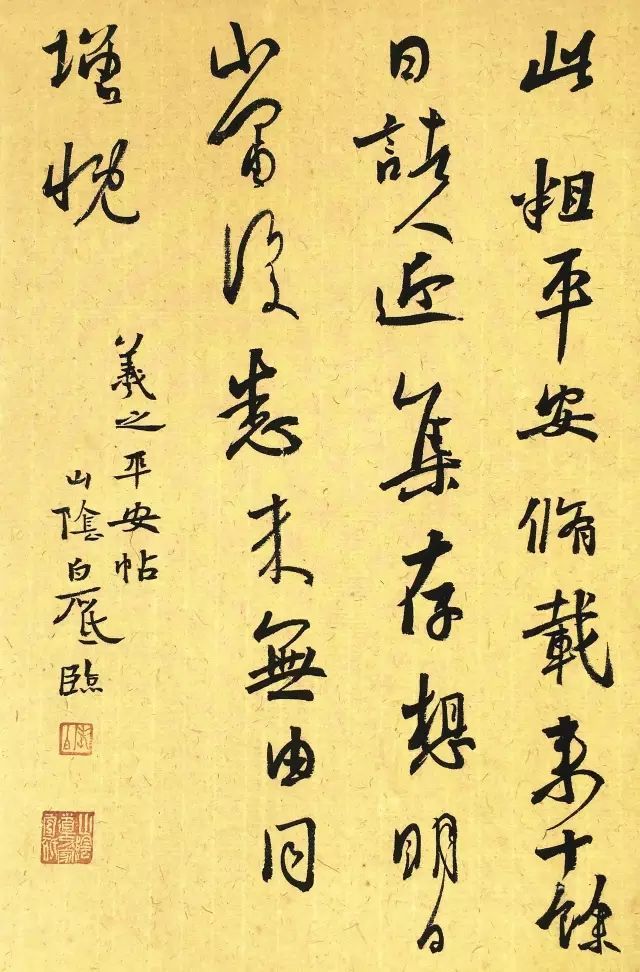 此粗平安脩載来十餘
日諸人近集存想明日
小當復悉来無由同
增慨
羲之平安帖
山陰白臨